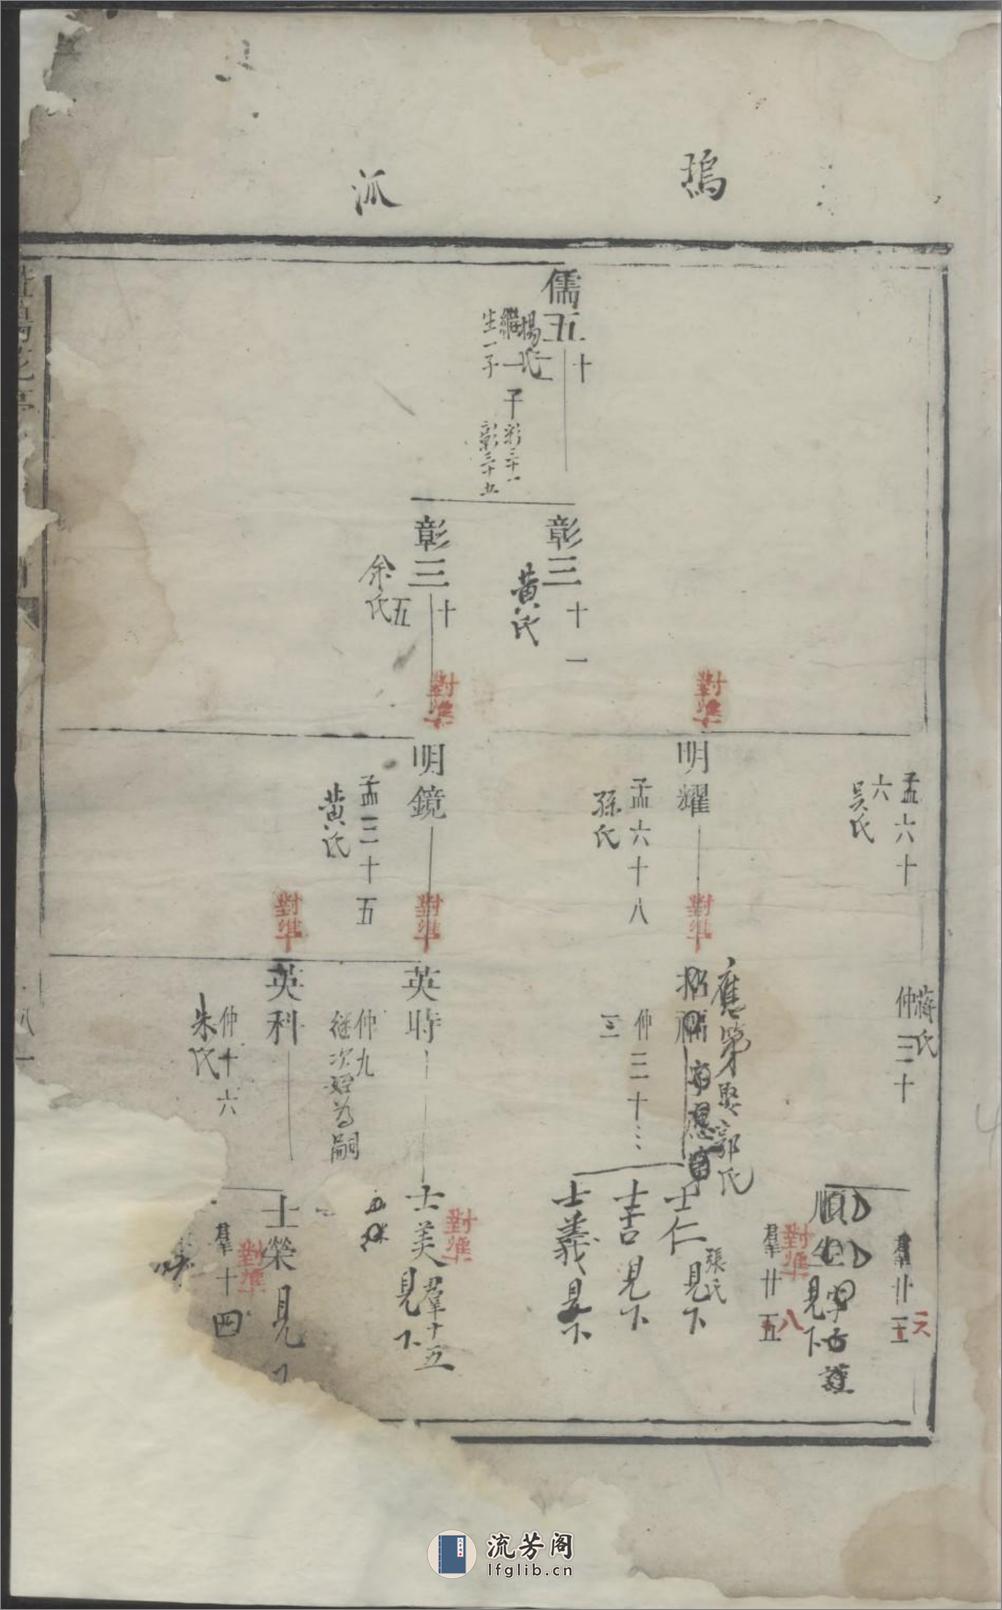 鴆 派
儒五十
楊氏
繼
生一子
子彰三十一
彰三十五
彰三十一
黄氏
彰三十五
余氏
對準
對準
孟六十六
吳氏
明耀
孟六十八
孫氏
明鏡
孟三十五
黄氏
對準
對準
對準
蔣氏
仲三十
應第娶郭氏
仲三十三
英時
仲九
继次姪為嗣
英科
仲十六
朱氏
羣廿
見下
對準
羣廿五
八
士仁見下
張氏
士吉見下
士義見下
對準
士美見下
羣十五
士榮見
對準
羣十四
流芳阁
lfglib.cn